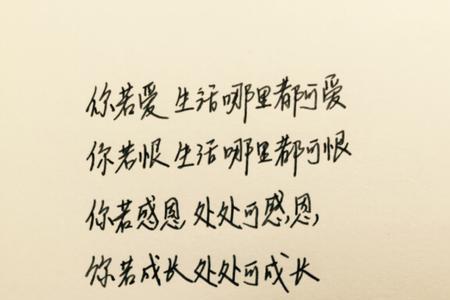 你若爱 生活哪里都可爱
你若恨 生活哪里都可恨
你若感恩 处处可感恩,
你若成长 处处可成长